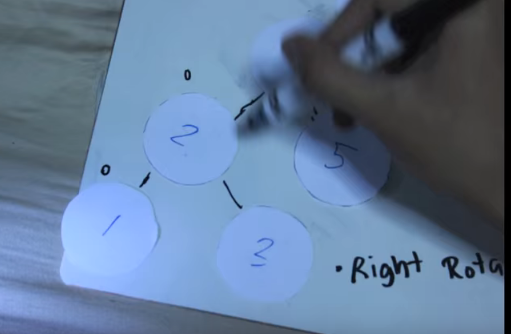 0
2
5
0
1
2
•Right Rota